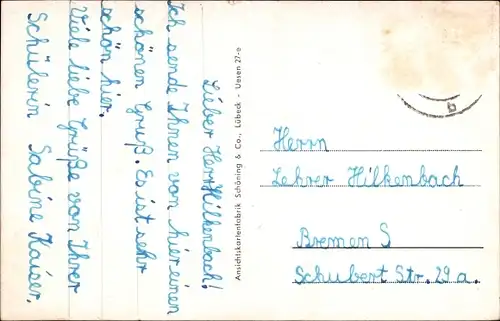 Lieber Herr Hilkenbach!
Ich sende Ihnen von hier einen
schönen Gruß. Es ist sehr
schön hier.
Viele liebe Grüße von Ihrer
Schülerin Sabine Kaiser.
Ansichtskartenfabrik Schöning & Co., Lübeck - Uesen 27-e
Herrn
Lehrer Hilkenbach
Bremen S
Schubert Str. 29 a.